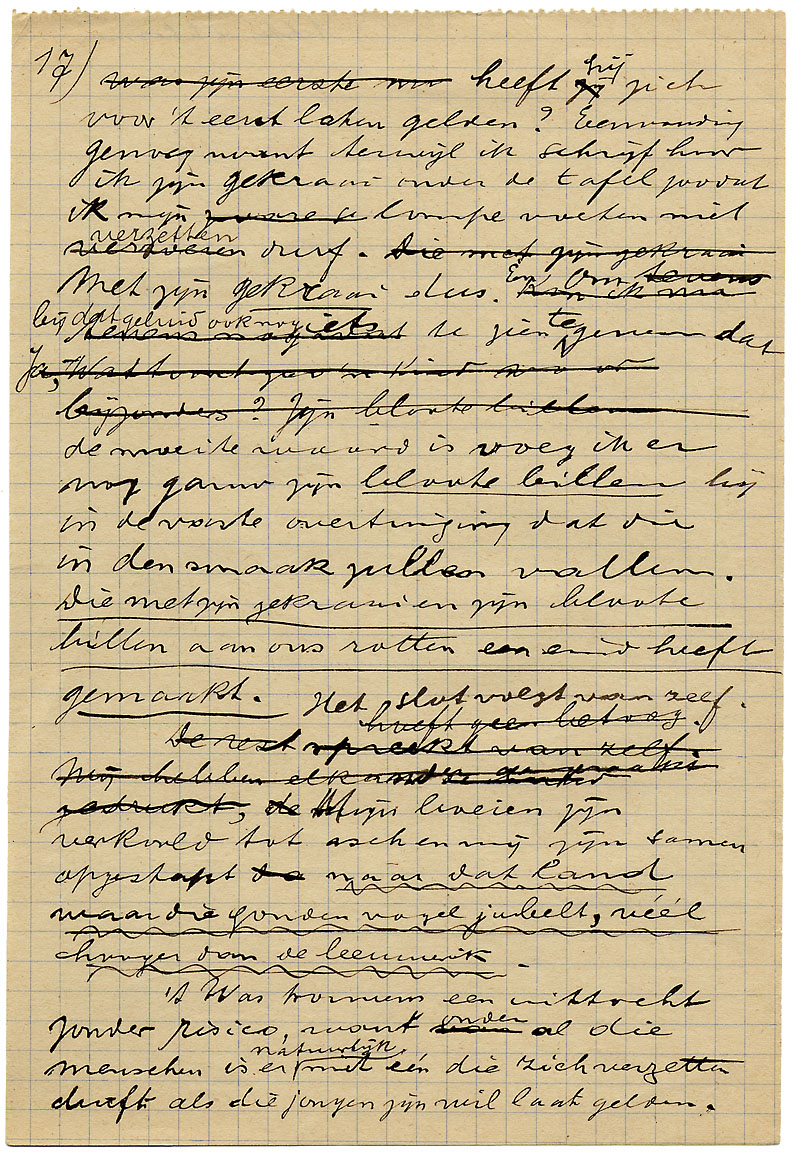 17) was zijn eerste heeft hij zich
voor 't eerst laten gelden? Eenvoudig
genoeg want terwijl ik schrijf hoor
ik zijn gekraai onder de tafel zoodat
ik mijn zware lompe voeten niet
verzetten durf. Die met zijn gekraai
Met zijn gekraai dus. En Om tevens
bij dat geluid ook nog iets te zien te geven dat
Ja, Wat
bijzonders? Zijn bloote billen
de moeite waard is voeg ik er
nog gauw zijn bloote billen bij
in de vaste overtuiging dat die
in den smaak zullen vallen.
Die met zijn gekraai en zijn bloote
billen aan ons rotten een eind heeft
gemaakt. Het slot volgt van zelf.
hoeft geen betoog.
De rest spreekt van zelf.
Wij hebben elkander de
gedrukt, de Mijn boeien zijn
verkoold tot asch en wij zijn samen
opgestapt naar dat land
waar die gouden vogel jubelt, véél
hooger dan de leeuwerik.
't Was trouwens een uittocht
zonder risico, want onder al die
menschen is er natuurlijk niet één die zich verzetten
durft als die jongen zijn wil laat gelden.